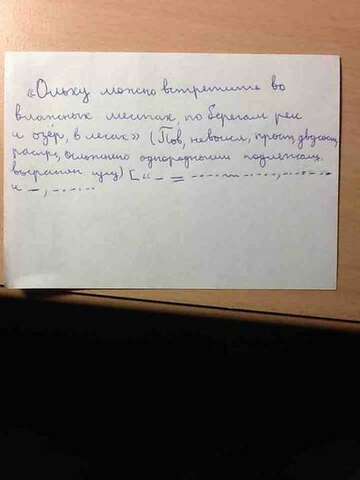 «Ольху можно встретить во
влажных местах, по берегам рек
и озёр, в лесах» (Пов, невоскл, прост, двусост,
распр, осложнено однородными подлежащ.
[“ – = 
и – ,